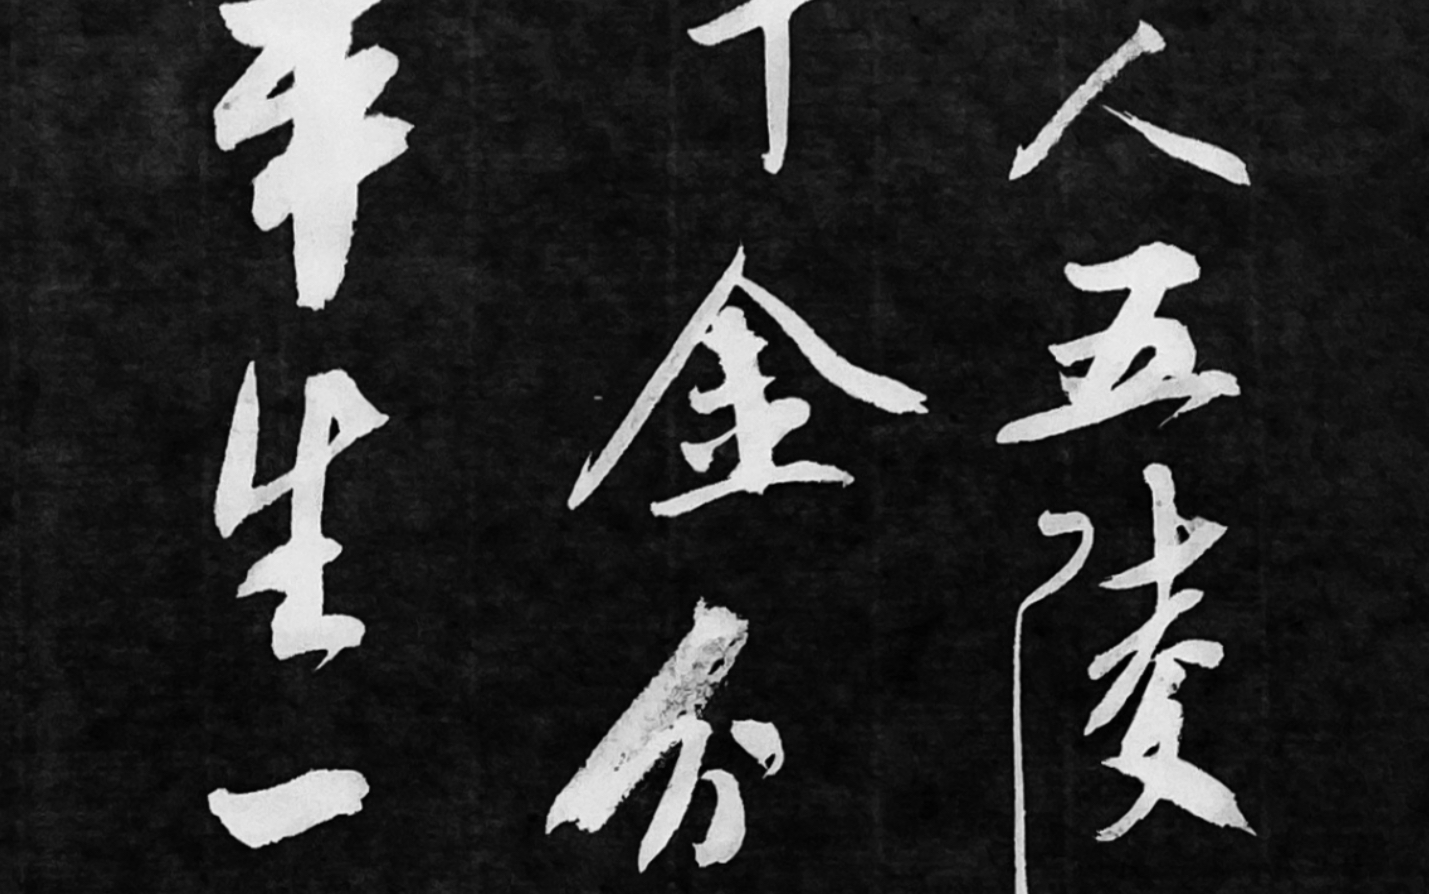 人五陵
千金分
平生一